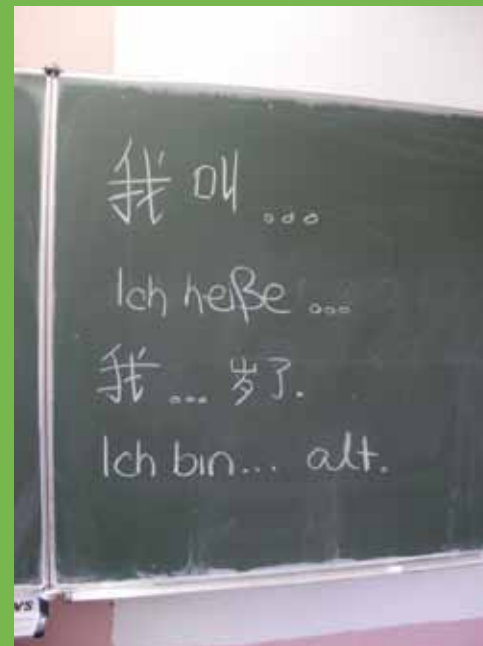 我 叫 ...
Ich heiße ...
我 ... 岁了.
Ich bin... alt.